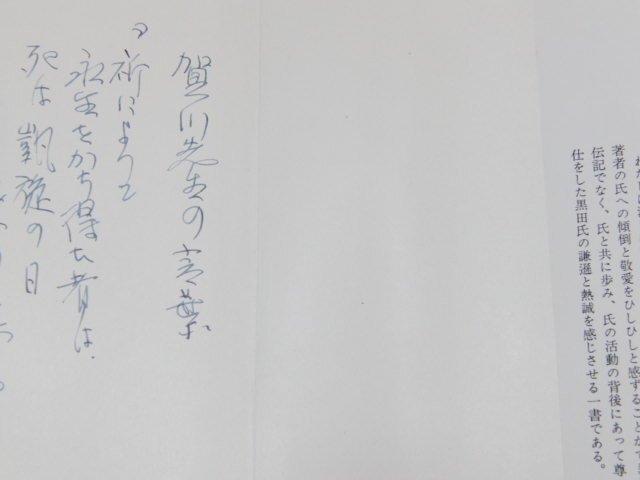 著者の氏への傾倒と敬愛をひしひしと感ずることができ
伝記でなく、氏と共に歩み、氏の活動の背後にあって尊
仕をした黒田氏の謙遜と熱誠を感じさせる一書である。
賀川先生の言葉
祈によって
永生をかち得た者は、
死は凱旋の日